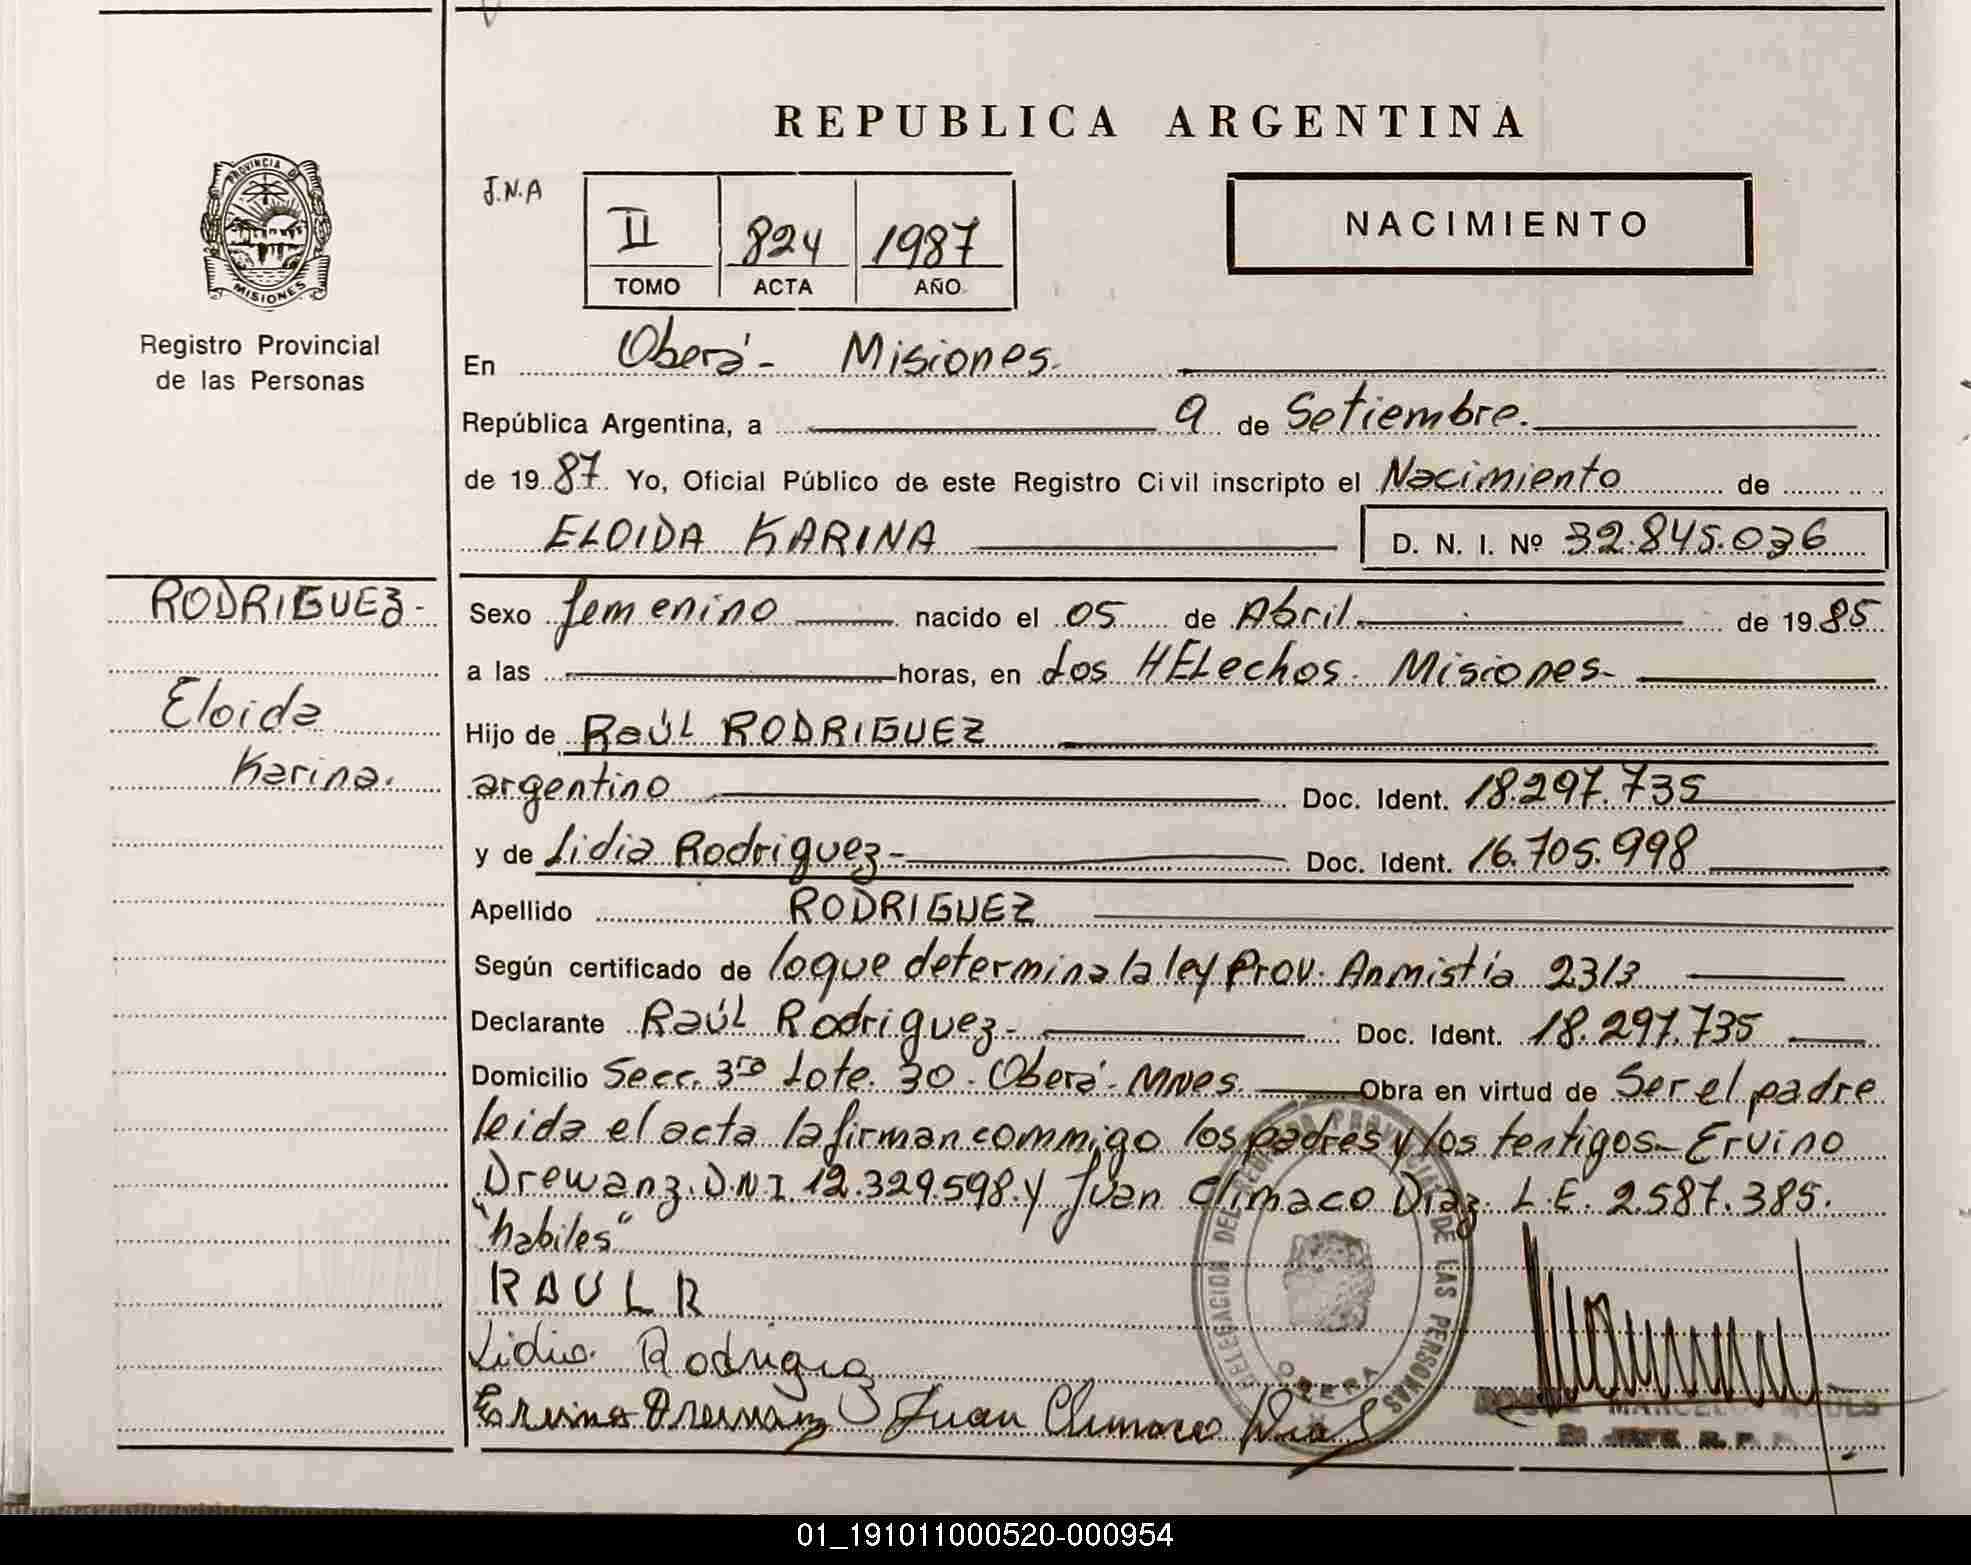 REPUBLICA ARGENTINA
PROVINCIA DE
MISIONES
Registro Provincial
de las Personas
J.N.A
II 824 1987
TOMO ACTA AÑO
NACIMIENTO
En Oberá- Misiones.
República Argentina, a 9 de Setiembre.
de 1987 Yo, Oficial Público de este Registro Civil inscripto el Nacimiento de
ELOIDA KARINA D. N. I. Nº 32.845.036
RODRIGUEZ-
Eloida
Karina.
Sexo femenino nacido el 05 de Abril. de 1985
a las horas, en Los HELechos. Misiones-
Hijo de RaÚL RODRIGUEZ
argentino Doc. Ident. 18.297.735
y de Lidia Rodriguez- Doc. Ident. 16.705.998
Apellido RODRIGUEZ
Según certificado de loque determina la ley Prov. Anmistía 2313
Declarante RaÚL Rodriguez- Doc. Ident. 18.297.735
Domicilio Secc. 3ra Lote. 30. Oberá- MNes. Obra en virtud de Ser el padre
leida el acta la firman commigo los padres y los tentigos- Ervino
Drewanz. D.N.I 12.329.598. y Juan Climaco Diaz. L.E. 2.587.385.
"habiles"
RAUL R
Lidia Rodrigez
Ervino Drewanz Juan Climaco Diaz
DELEGACION DEL REGISTRO PROVINCIAL DE LAS PERSONAS
OBERA
MARCELO
01_191011000520-000954